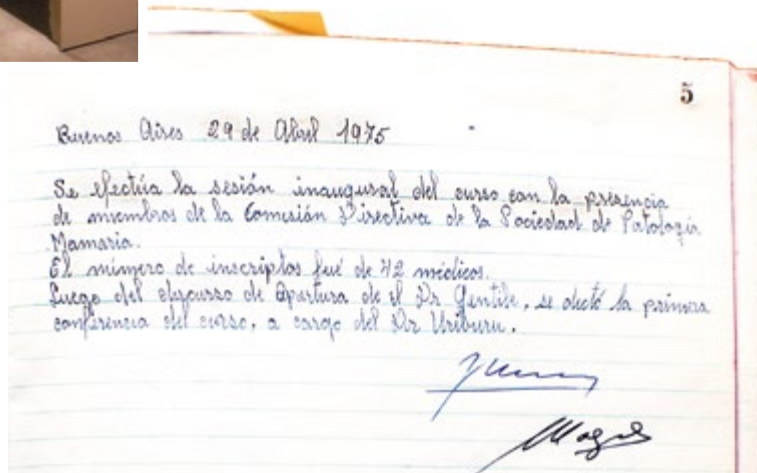 5
Buenos Aires 29 de Abril 1975
Se efectúa la sesión inaugural del curso con la presencia
de miembros de la Comisión Directiva de la Sociedad de Patología
Mamaria.
El número de inscriptos fué de 42 médicos.
Luego del discurso de Apertura de el Dr Gentile, se dictó la primera
conferencia del curso, a cargo del Dr Uriburu.